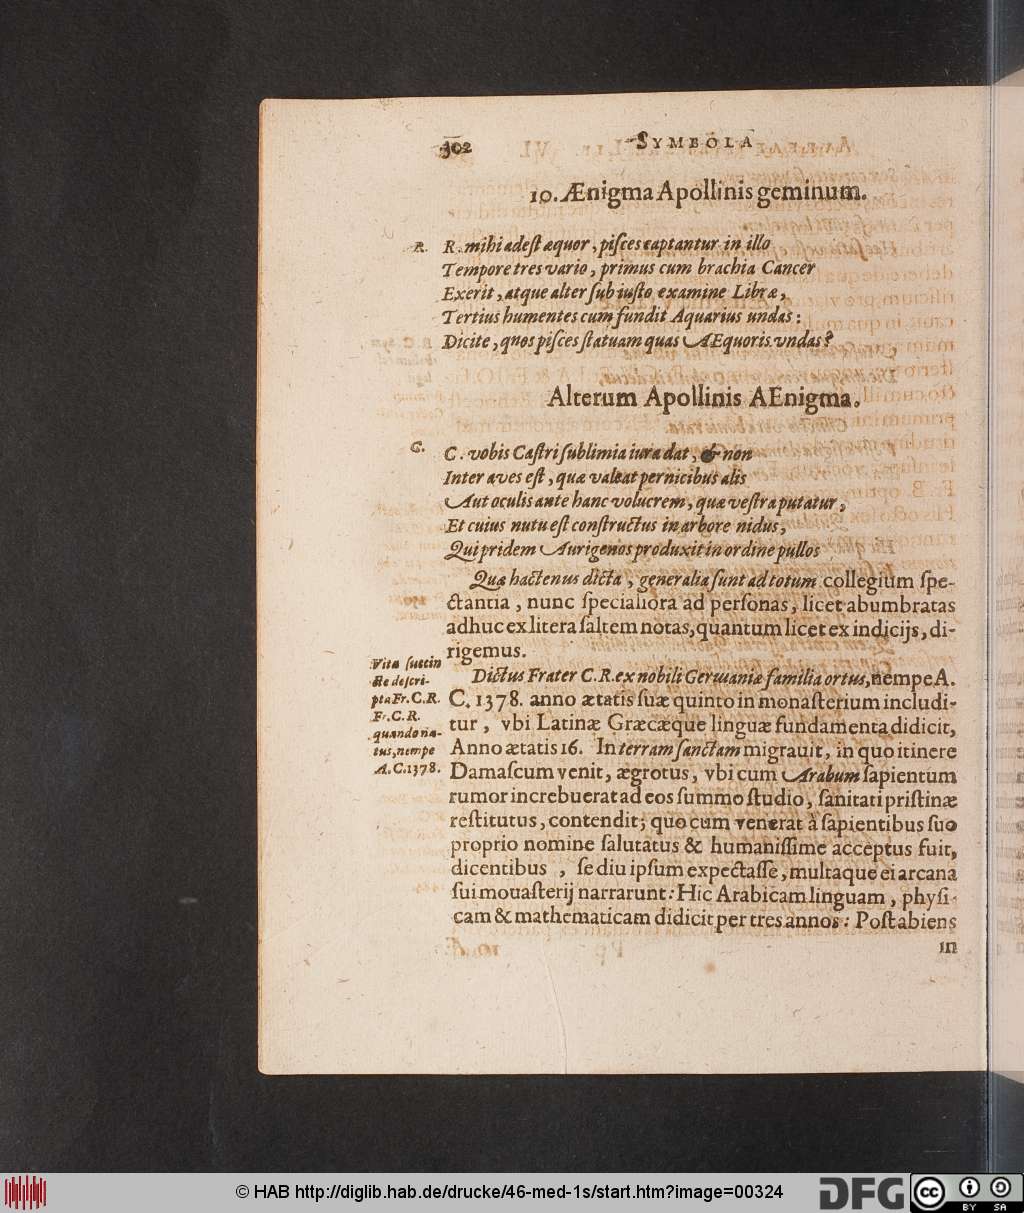 302 SYMBOLA
10. Ænigma Apollinis geminum.
R. R. mihi adest æquor, pisces captantur in illo
Tempore tres vario, primus cum brachia Cancer
Exerit, atque alter sub iusto examine Libræ,
Tertius humentes cum fundit Aquarius undas:
Dicite, quos pisces statuam quas AEquoris vndas?
Alterum Apollinis AEnigma.
C. C. vobis Castri sublimia iura dat, & non
Inter aves est, quæ valeat pernicibus alis
Aut oculis ante hanc volucrem, quæ vestra putatur,
Et cuius nutu est constructus in arbore nidus,
Qui pridem Aurigenos produxit in ordine pullos
Quæ hactenus dicta, generalia sunt ad totum collegium spe-
ctantia, nunc specialiora ad personas, licet abumbratas
adhuc ex litera saltem notas, quantum licet ex indicijs, di-
rigemus.
Vita succin
cte descri-
pta Fr. C. R.
Fr. C. R.
quando na-
tus, nempe
A. C. 1378.
Dictus Frater C. R. ex nobili Germaniæ familia ortus, nempe A.
C. 1378. anno ætatis suæ quinto in monasterium includi-
tur, vbi Latinæ Græcæque linguæ fundamenta didicit,
Anno ætatis 16. In terram sanctam migrauit, in quo itinere
Damascum venit, ægrotus, vbi cum Arabum sapientum
rumor increbuerat ad eos summo studio, sanitati pristinæ
restitutus, contendit; quo cum venerat à sapientibus suo
proprio nomine salutatus & humanissime acceptus fuit,
dicentibus, se diu ipsum expectasse, multaque ei arcana
sui mouasterij narrarunt: Hic Arabicam linguam, physi-
cam & mathematicam didicit per tres annos: Post abiens
in
© HAB http://diglib.hab.de/drucke/46-med-1s/start.htm?image=00324
DFG
cc BY SA